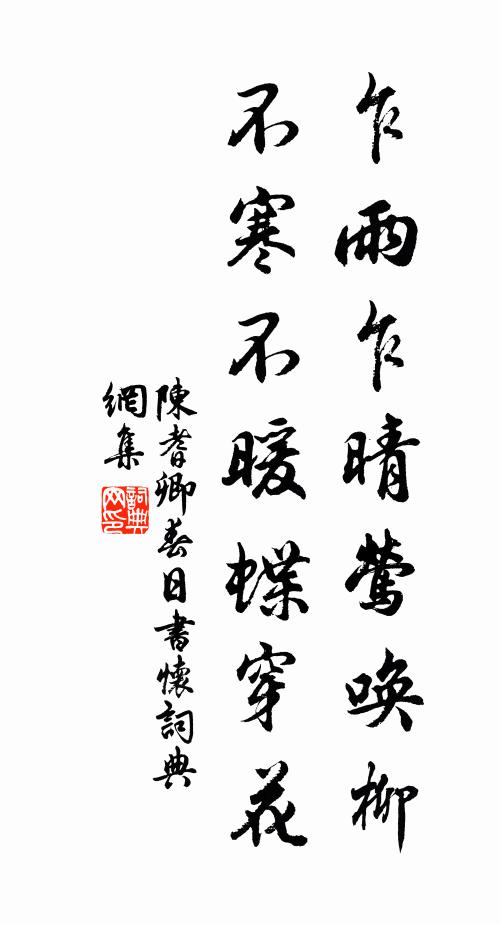 乍雨乍晴鶯喚柳
不寒不暖蝶穿花
陳耆卿春日書懷詞典
網集
詞典
网印